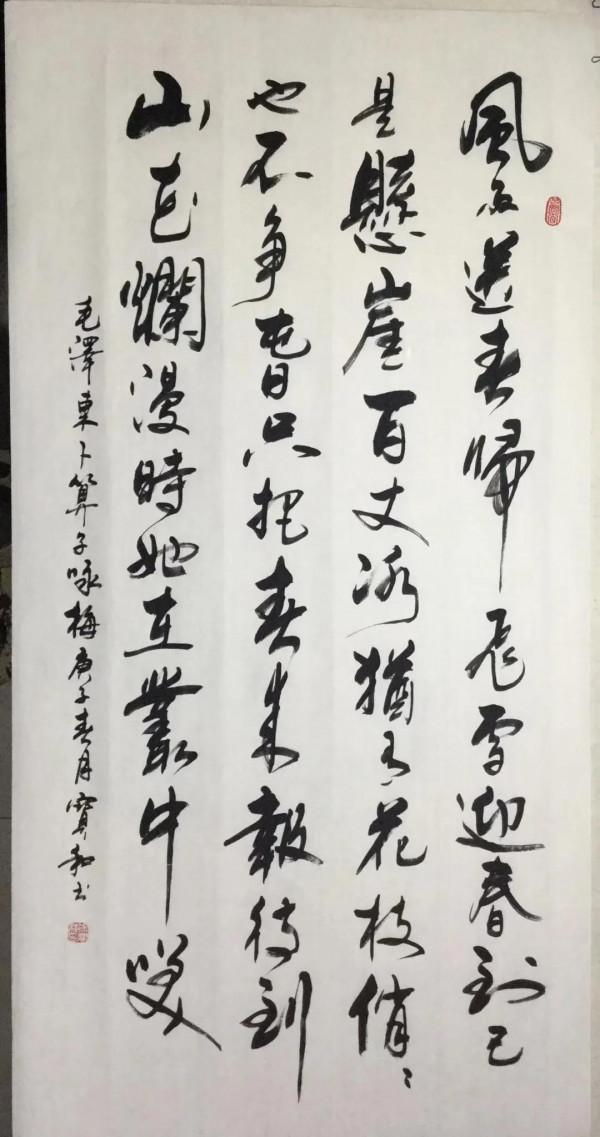 風雨送春歸飛雪迎春到已
是懸崖百丈冰猶有花枝俏〻
也不争旾只把春來報待到
山花爛漫時她在叢中咲
毛澤東卜算子咏梅庚子春月寶和书